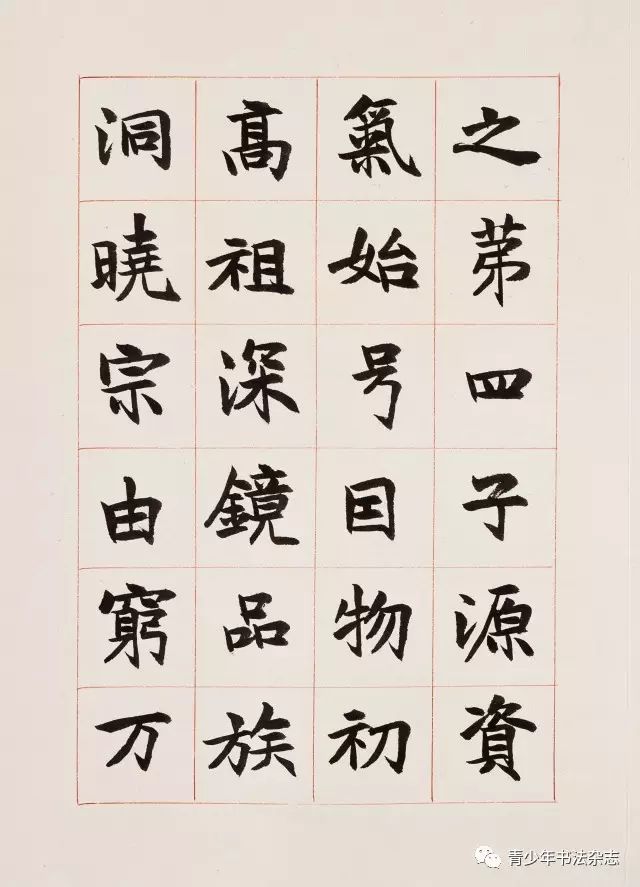 之苐四子源資
氣始号囯物初
髙祖深鏡品族
洞曉宗由窮万
青少年书法杂志